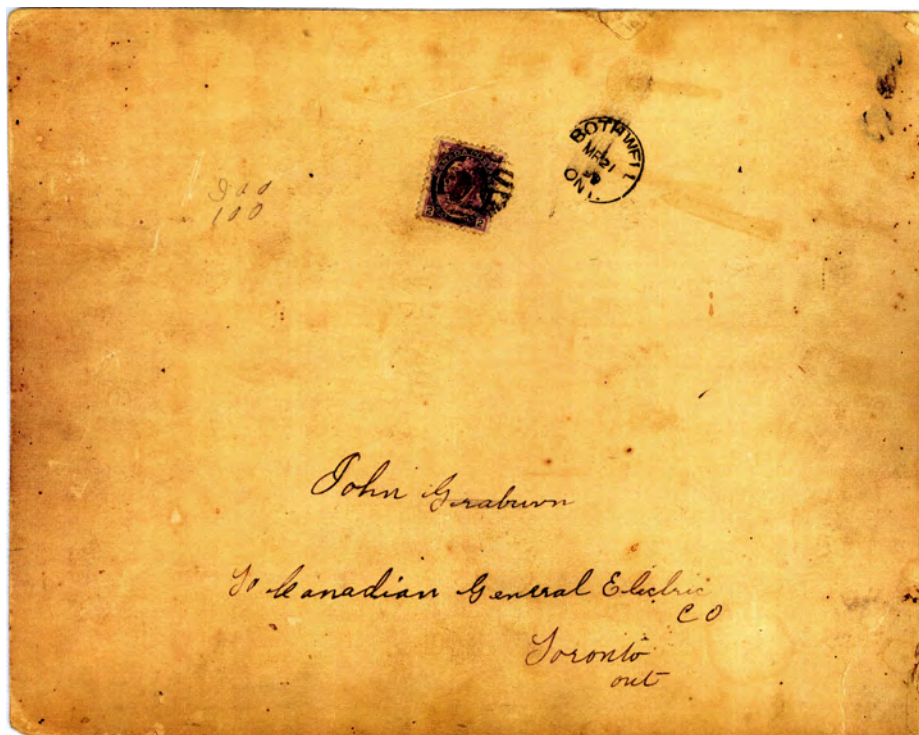 BOTHWELL
MR 21
99
ONT
300
100
John Graburn
To Canadian General Electric
CO
Toronto
ont